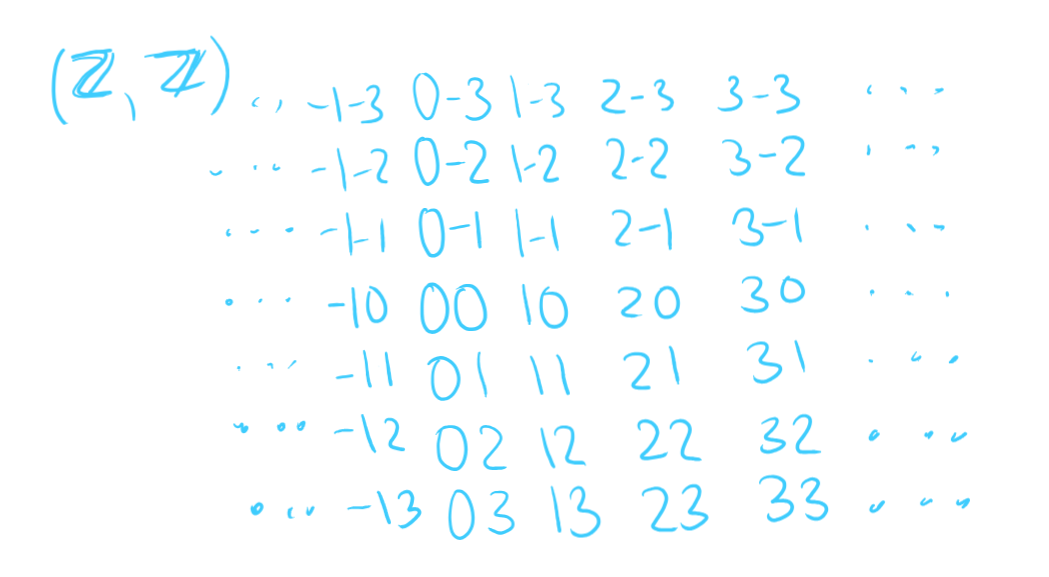 (ℤ, ℤ) ... -1-3 0-3 1-3 2-3 3-3 ...
... -1-2 0-2 1-2 2-2 3-2 ...
... -1-1 0-1 1-1 2-1 3-1 ...
... -10 00 10 20 30 ...
... -11 01 11 21 31 ...
... -12 02 12 22 32 ...
... -13 03 13 23 33 ...